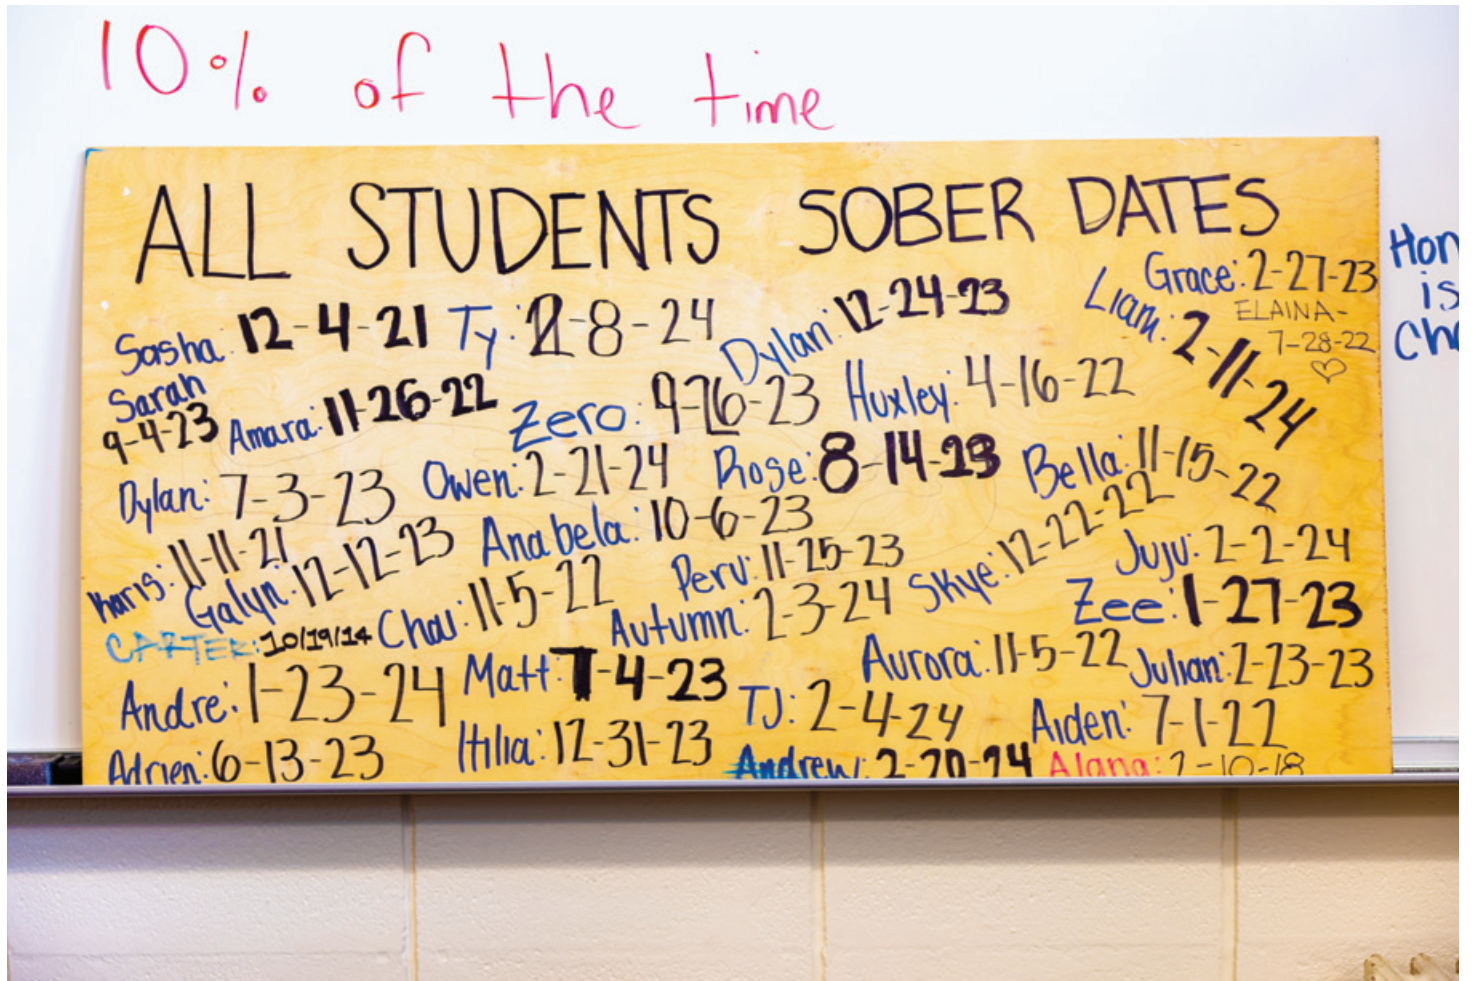 10% of the time
ALL STUDENTS SOBER DATES
Grace: 2-27-23
Hon
is
Cha
ELAINA-
7-28-22
Liam: 2-11-24
Sasha: 12-4-21
Ty: 2-8-24
Dylan: 12-24-23
Sarah
9-4-23
Amara: 11-26-22
Zero: 9-26-23
Huxley: 4-16-22
Dylan: 7-3-23
Owen: 2-21-24
Rose: 8-14-23
Bella: 11-15-22
Karis: 11-11-21
Galyn: 12-12-23
Anabela: 10-6-23
Peru: 11-25-23
Skye: 12-22-22
Juju: 2-2-24
CARTER: 10/19/14
Chai: 11-5-22
Autumn: 2-3-24
Zee: 1-27-23
Andre: 1-23-24
Matt: 7-4-23
Aurora: 11-5-22
Julian: 2-23-23
TJ: 2-4-24
Aiden: 7-1-22
Adrien: 6-13-23
12-31-23
Andrew: 2-20-24
Alana: 2-10-18